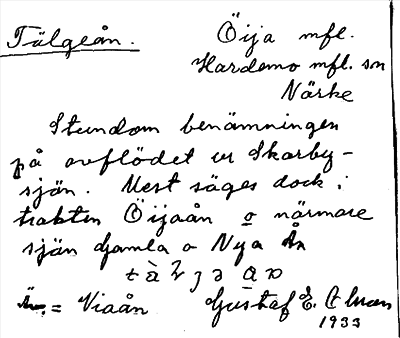 Tälgeån. Öija mfl.
Hardemo mfl. sn
Närke
Stundom benämningen
på avflödet ur Skarby-
sjön. Mest säges dock i
trakten Öijaån o närmare
sjön Gamla o Nya Ån
= Viaån Gustaf E. Alman
1933